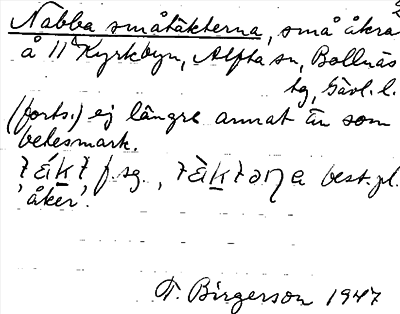 Nabba småtäkterna, små åkra
å 11 Kyrkbyn, Alfta sn, Bollnäs
tg, Gävl. l.
(forts.) ej längre annat än som
betesmark.
f. sg., best. pl.
'åker'.
F. Birgerson 1947